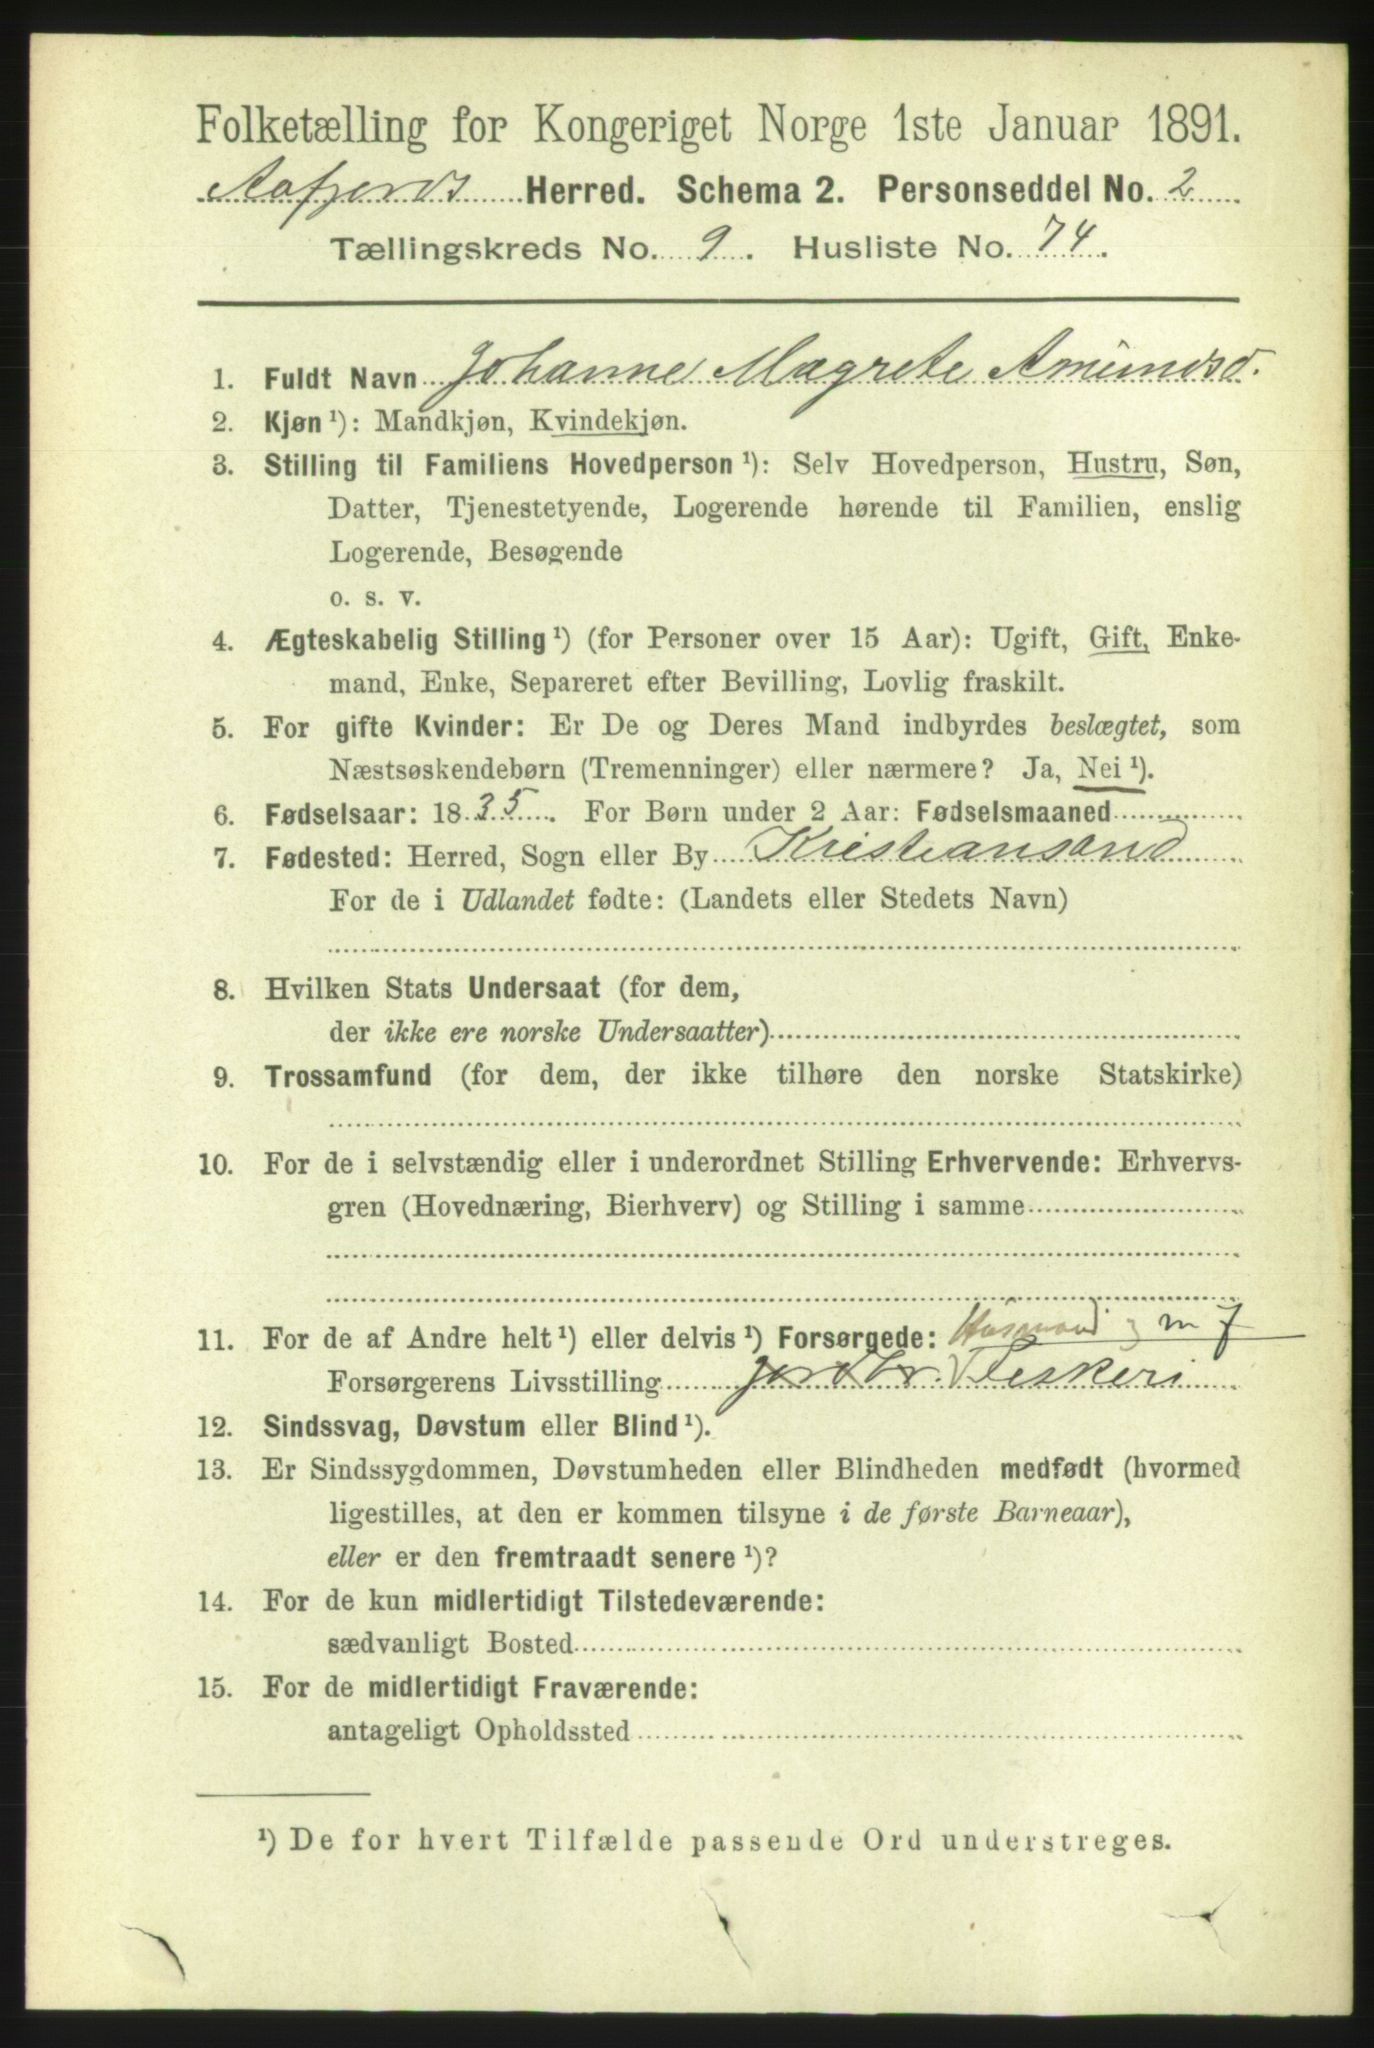 Folketælling for Kongeriget Norge 1ste Januar 1891.
Aafjords Herred. Schema 2. Personseddel No. 2
Tællingskreds No. 9. Husliste No. 74.
1. Fuldt Navn Johanne Magrete Amundsd.
2. Kjøn ¹): Mandkjøn, Kvindekjøn.
3. Stilling til Familiens Hovedperson ¹): Selv Hovedperson, Hustru, Søn,
Datter, Tjenestetyende, Logerende hørende til Familien, enslig
Logerende, Besøgende
o. s. v.
4. Ægteskabelig Stilling ¹) (for Personer over 15 Aar): Ugift, Gift, Enke-
mand, Enke, Separeret efter Bevilling, Lovlig fraskilt.
5. For gifte Kvinder: Er De og Deres Mand indbyrdes beslægtet, som
Næstsøskendebørn (Tremenninger) eller nærmere? Ja, Nei ¹).
6. Fødselsaar: 1835. For Børn under 2 Aar: Fødselsmaaned
7. Fødested: Herred, Sogn eller By Kristiansand
For de i Udlandet fødte: (Landets eller Stedets Navn)
8. Hvilken Stats Undersaat (for dem,
der ikke ere norske Undersaatter)
9. Trossamfund (for dem, der ikke tilhøre den norske Statskirke)
10. For de i selvstændig eller i underordnet Stilling Erhvervende: Erhvervs-
gren (Hovednæring, Bierhverv) og Stilling i samme
11. For de af Andre helt ¹) eller delvis ¹) Forsørgede: Husmand m J
Forsørgerens Livsstilling Jordbr. Fiskeri
12. Sindssvag, Døvstum eller Blind ¹).
13. Er Sindssygdommen, Døvstumheden eller Blindheden medfødt (hvormed
ligestilles, at den er kommen tilsyne i de første Barneaar),
eller er den fremtraadt senere ¹)?
14. For de kun midlertidigt Tilstedeværende:
sædvanligt Bosted
15. For de midlertidigt Fraværende:
antageligt Opholdssted
¹) De for hvert Tilfælde passende Ord understreges.